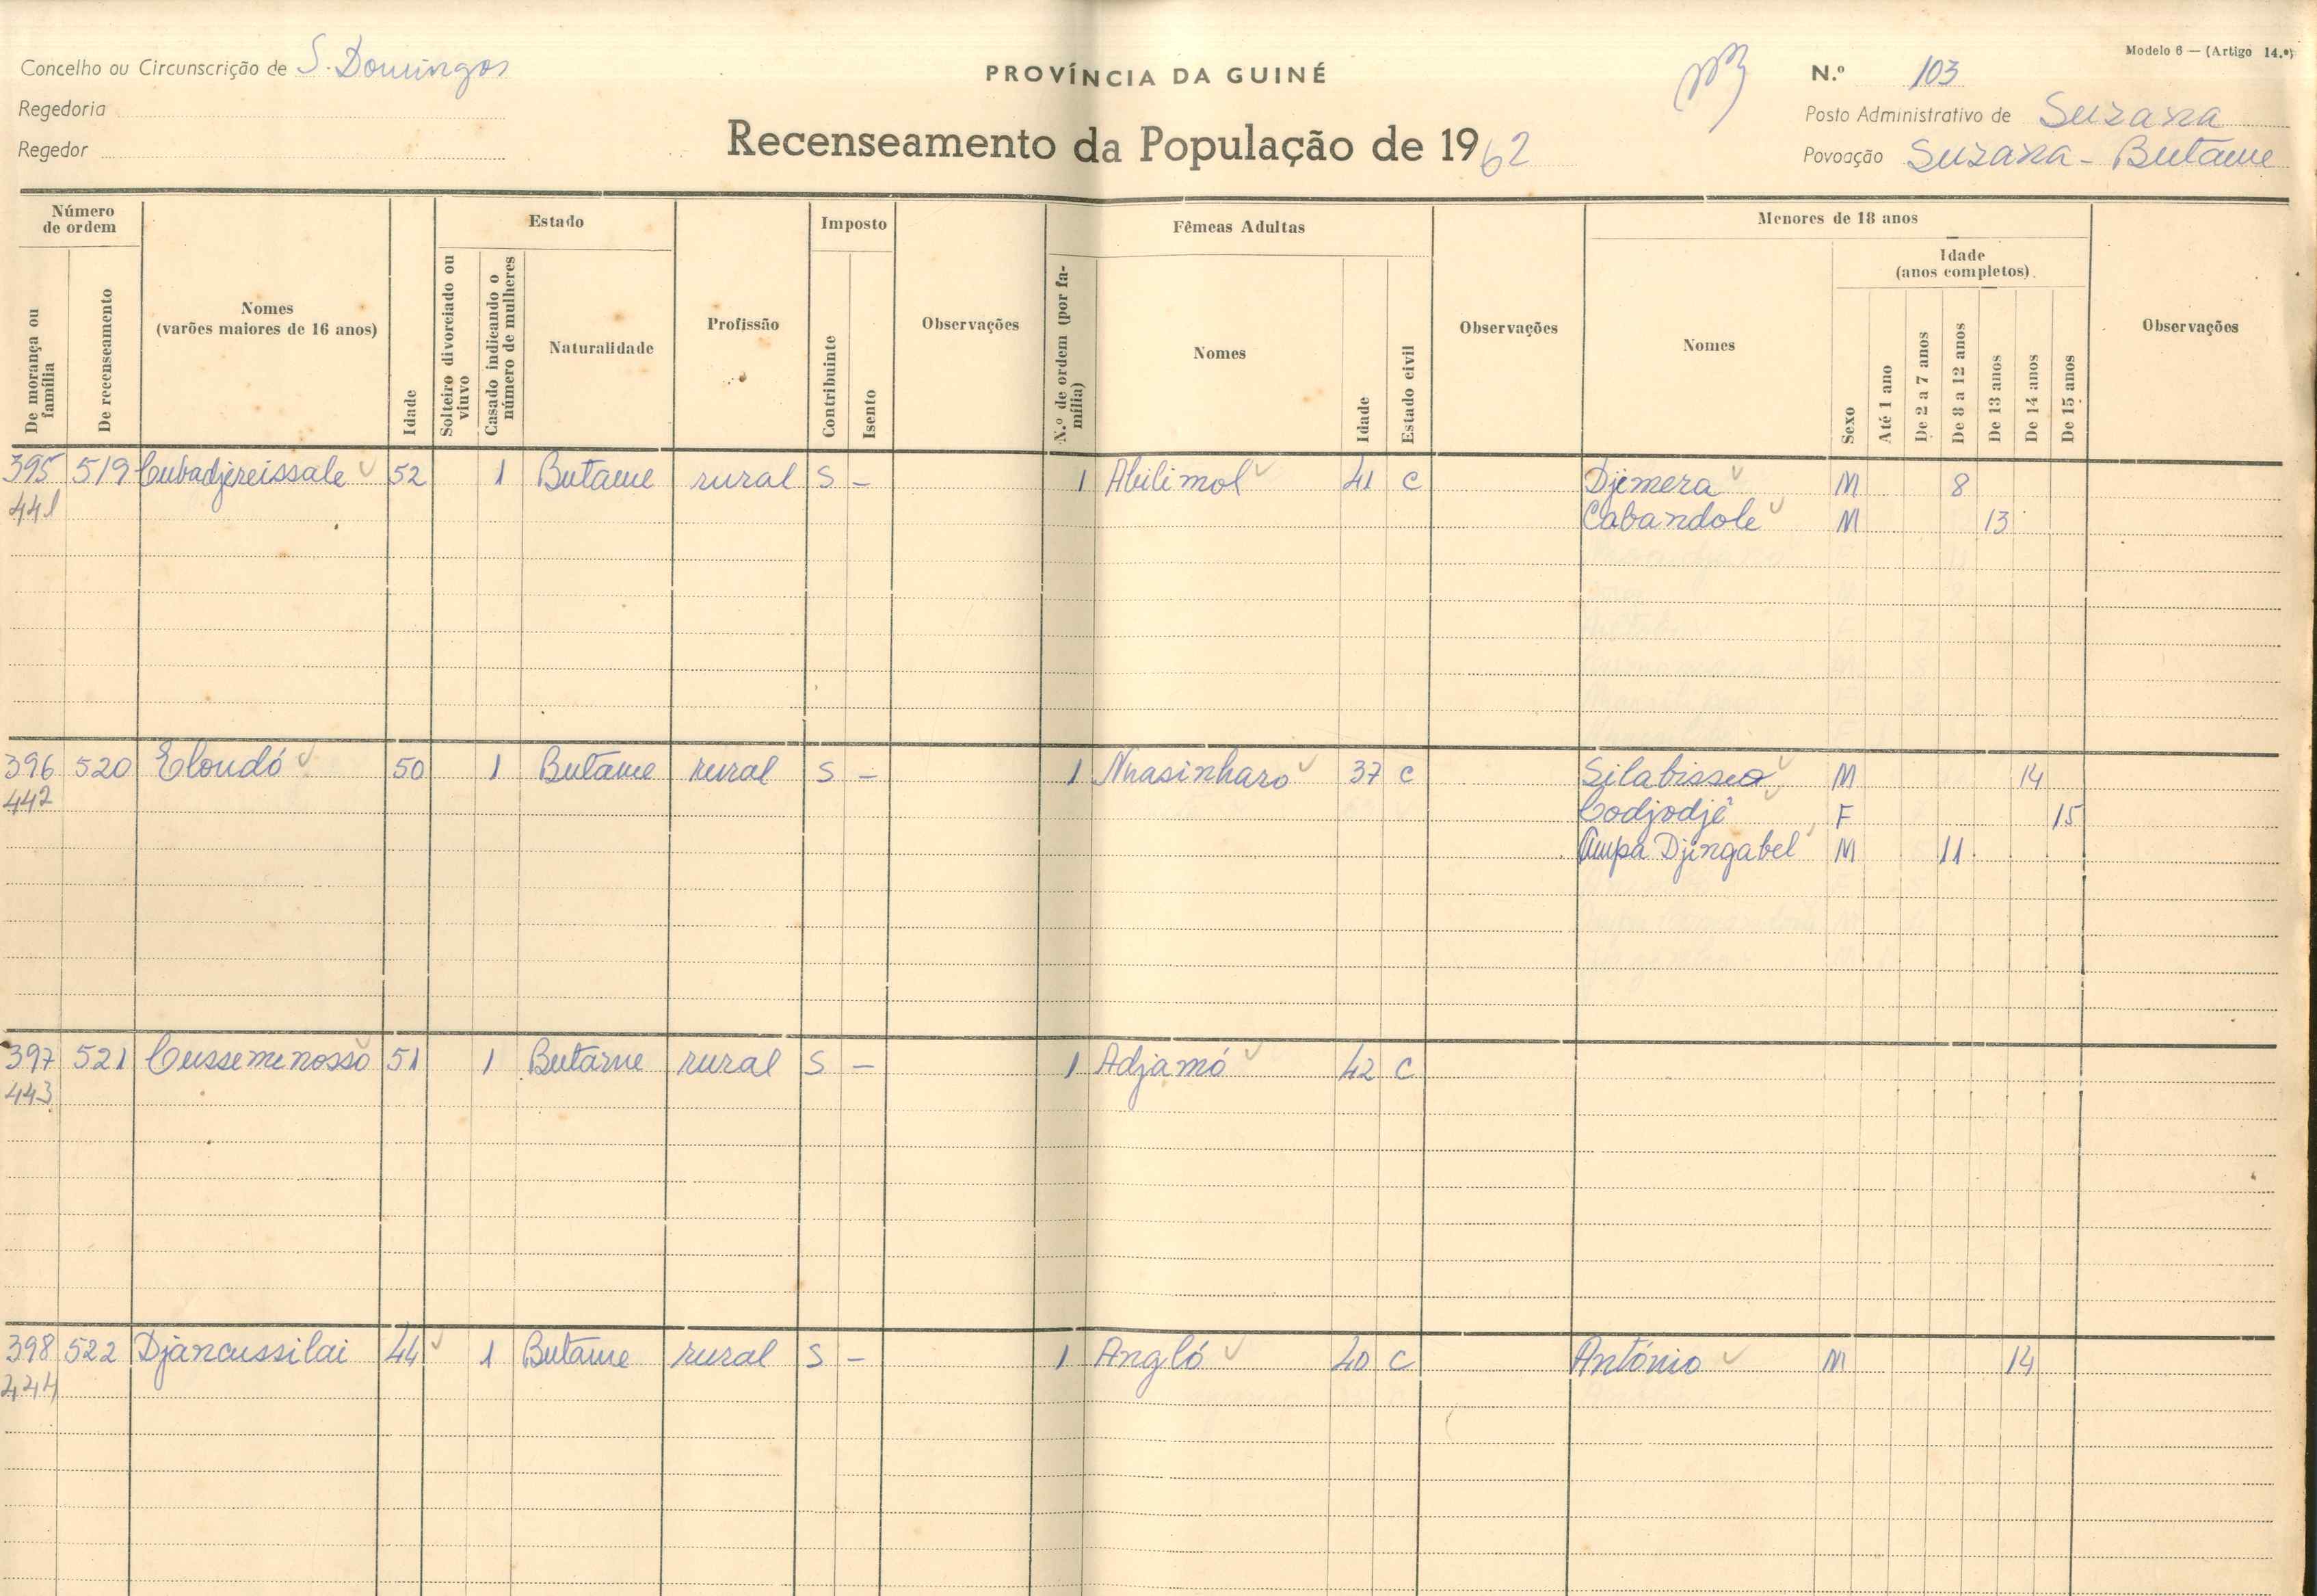 Modelo 6 — (Artigo 14.º)
Concelho ou Circunscrição de S. Domingos
PROVÍNCIA DA GUINÉ
N.º 103
Regedoria
Posto Administrativo de Suzana
Regedor
Recenseamento da População de 1962
Povoação Suzana - Butame
Número de ordem
Estado
Imposto
Fêmeas Adultas
Menores de 18 anos
Idade
(anos completos)
De morança ou família
De recenseamento
Nomes
(varões maiores de 16 anos)
Idade
Solteiro divorciado ou viuvo
Casado indicando o número de mulheres
Naturalidade
Profissão
Contribuinte
Isento
Observações
N.º de ordem (por família)
Nomes
Idade
Estado civil
Observações
Nomes
Sexo
Até 1 ano
De 2 a 7 anos
De 8 a 12 anos
De 13 anos
De 14 anos
De 15 anos
Observações
395 519 Cubadjereissale 52 1 Butame rural S - 1 Abilimol 41 C Djemera M 8
441 Cabandole M 13
396 520 Eloudó 50 1 Butame rural S - 1 Nhasinharo 37 C Silabisseo M 14
442 Codjodjé F 15
Ampa Djingabel M 11
397 521 Cusseminosso 51 1 Butame rural S - 1 Adjamó 42 C
443
398 522 Djancussilai 44 1 Butame rural S - 1 Angló 40 C António M 14
444